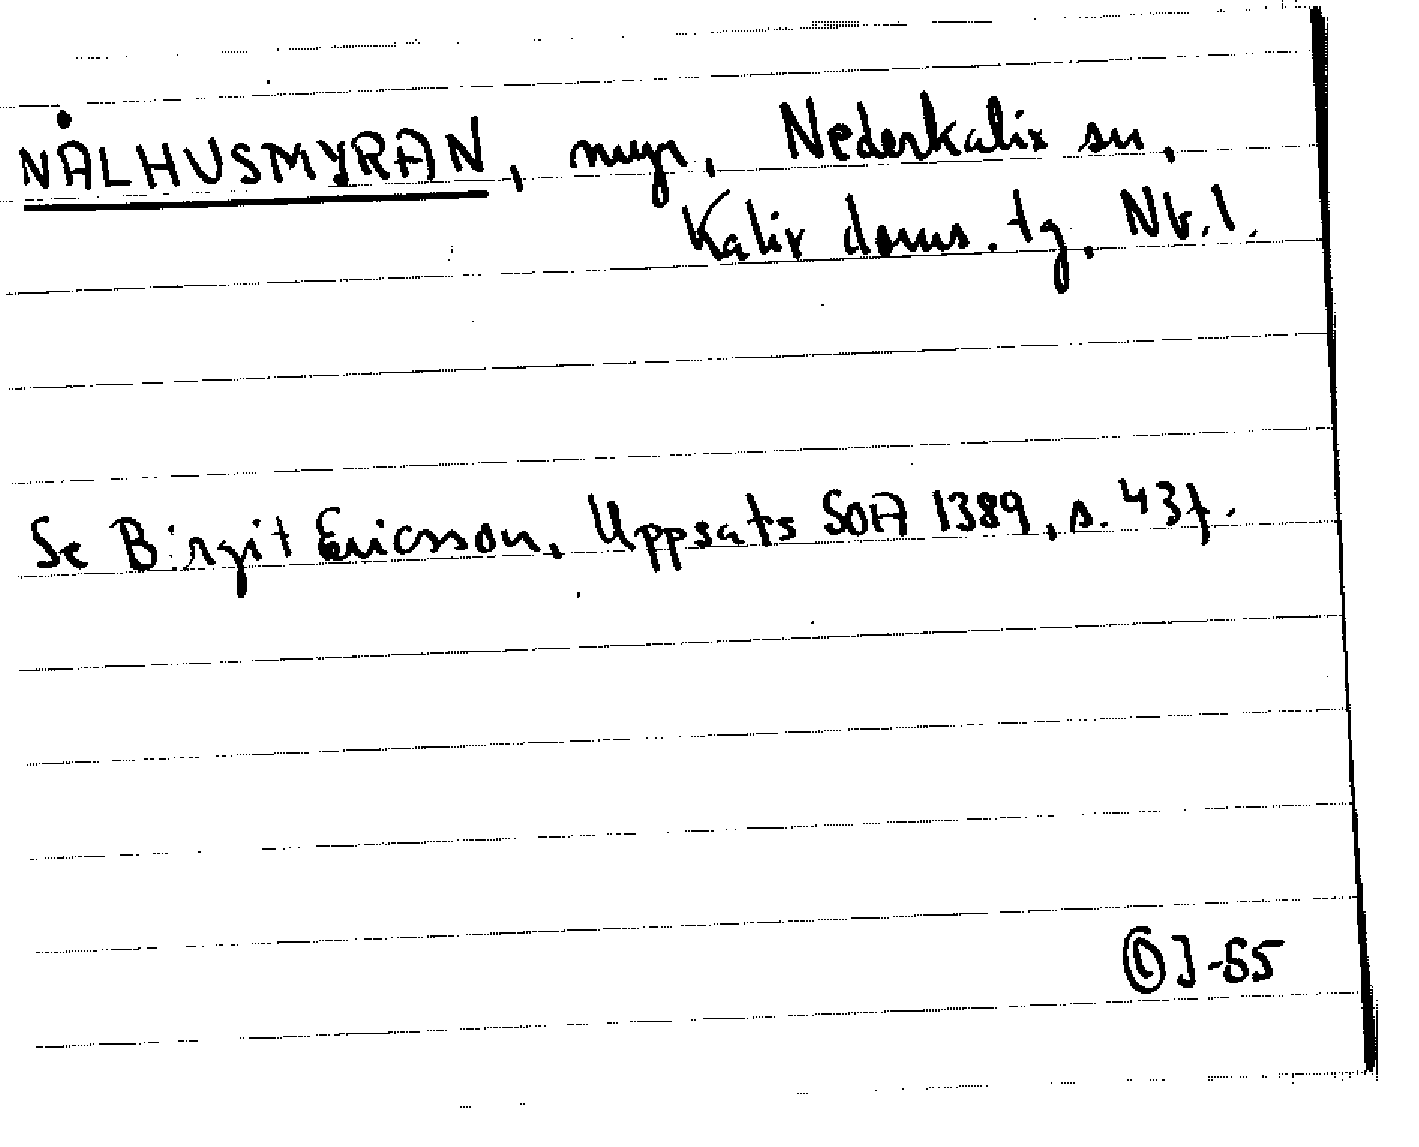 NÅLHUSMYRAN, myr, Nederkalix sn,
Kalix doms. tg, Nb. l.
Se Birgit Ericsson, Uppsats SOFA 1389, s. 43f.